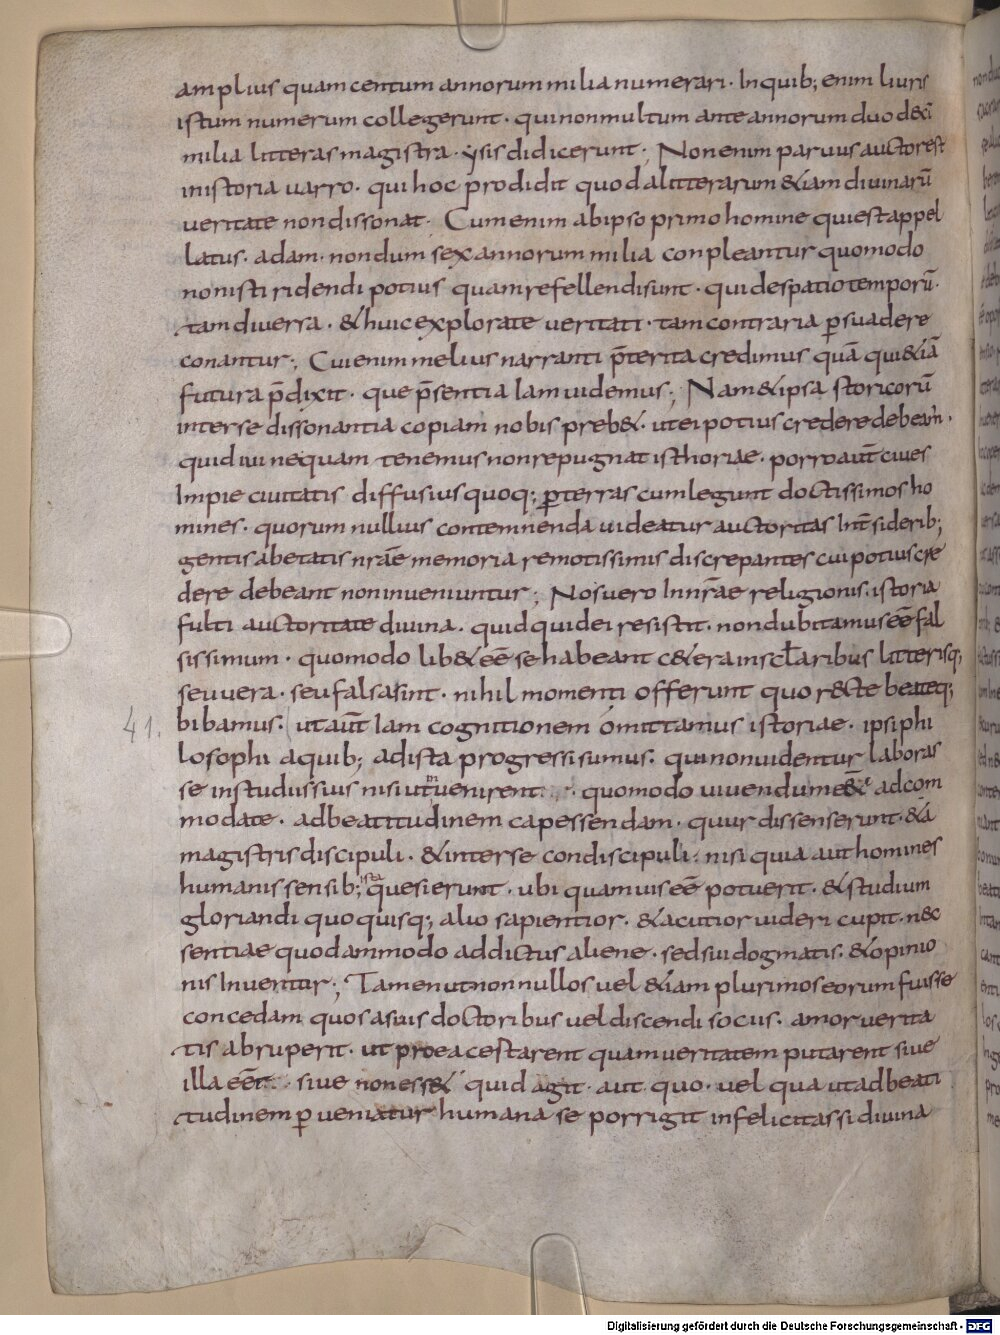 amplius quam centum annorum milia numerari · Inquib; enim liuris
istum numerum collegerunt · qui non multum ante annorum duodecī
milia litteras magistra · ysis didicerunt ; Non enim paruus auctor est
inistoria uarro · qui hoc prodidit quod a litterarum &iam diuinarū
ueritate non dissonat · Cum enim ab ipso primo homine qui est appel
latus · adam · nondum sex annorum milia conpleantur quomodo
non isti ridendi potius quam refellendi sunt · qui de spatio temporū ·
tam diuersa · & huic explorate ueritati · tam contraria ꝑsuadere
conantur ; Cui enim melius narranti p̄terita credimus quā qui &iā
futura p̄dixit · que p̄sentia Iam uidemus ; Nam & ipsa storicorū
inter se dissonantia copiam nobis preb& · ut ei potius credere debeam̄ ·
quid iui nequam tenemus non repugnat isthoriae · porro aut̄ ciues
Impie ciuitatis diffusius quoq; ꝑ terras cum legunt doctissimos ho
mines · quorum nullius contemnenda uideatur auctoritas Int̄ siderib;
gentis ab etatis nr̄ae memoria remotissimis discrepantes cui potius cre
dere debeant non inueniuntur ; Nos uero In nr̄ae religionis · istoria
fulti auctoritate diuina · quid quid ei resistit · non dubitamus eē fal
sissimum · quomodo lib& eē se habeant c&era in scl̄aribus litterisq;
seu uera · seu falsa sint · nihil momenti offerunt quo recte beateq;
41. bibamus · ut aut̄ Iam cognitionem omittamus istoriae · ipsi phi
losophi a quib; ad ista progressi sumus · qui non uidentur laboras
se in studiis suis nisi ut inuenirent · quomodo uiuendum e&̄ ad com
modate · ad beatitudinem capessendam · quur dissenserunt · &a
magistris discipuli · & inter se condiscipuli · nisi quia aut homines
humanis sensib; ista quesierunt · ubi quamuis eē potuerit · & studium
gloriandi quo quisq; alio sapientior · & acutior uideri cupit · nec
sentiae quodammodo addictus aliene · sed sui dogmatis · & opinio
nis Inuentur ; Tamen ut non nullos uel &iam plurimos eorum fuisse
concedam quos a suis doctoribus uel discendi socus · amor uerita
tis abruperit · ut pro ea cestarent quam ueritatem putarent siue
illa eēt · siue non ess& quid agit · aut quo · uel qua ut ad beati
tudinem ꝑueniatur humana se porrigit infelicitas si diuina
Digitalisierung gefördert durch die Deutsche Forschungsgemeinschaft - DFG